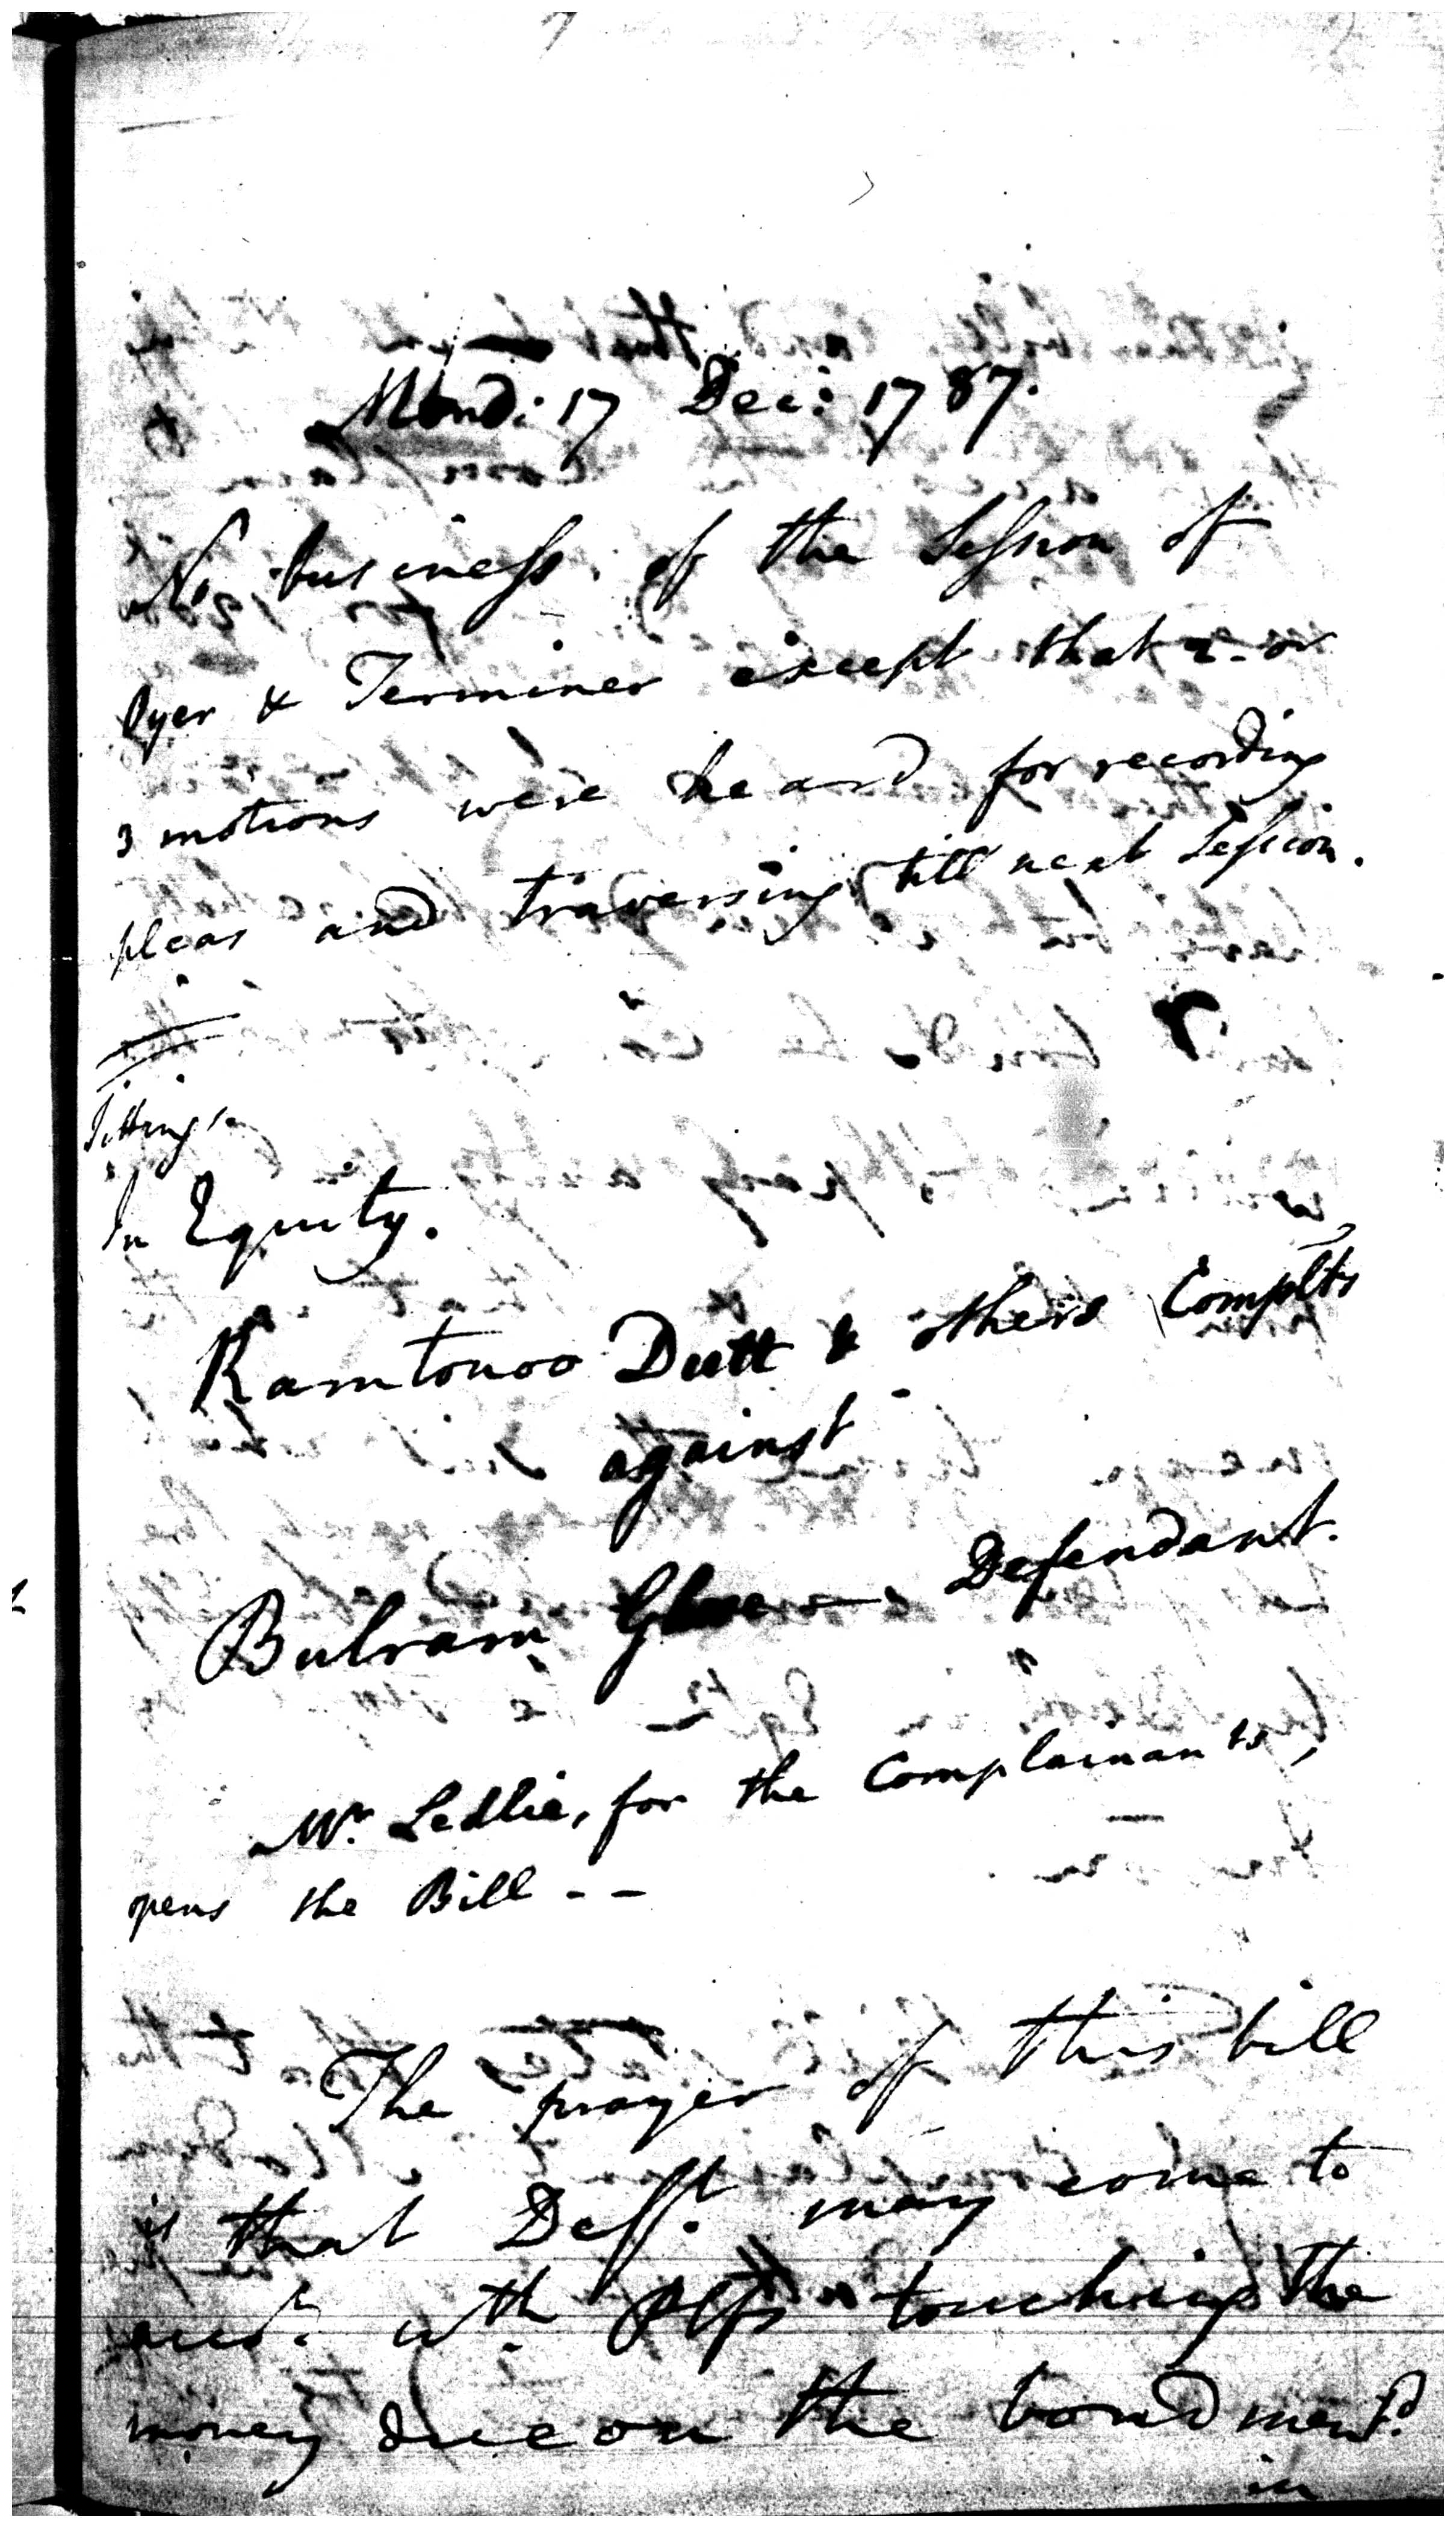 Mond: 17 Dec: 1787.
No business of the Session of
Oyer & Terminer except that 2 or
3 motions were heard for recording
pleas and traversing till next Session.
Sittings
In Equity.
Ramtonoo Dutt & others Complts
against
Bulram Defendant.
Mr. Ledlie, for the Complainants,
opens the Bill - -
The prayer of this bill
is that Deft. may come to
wth. Plfs touching the
money due on the bond ment.d
in